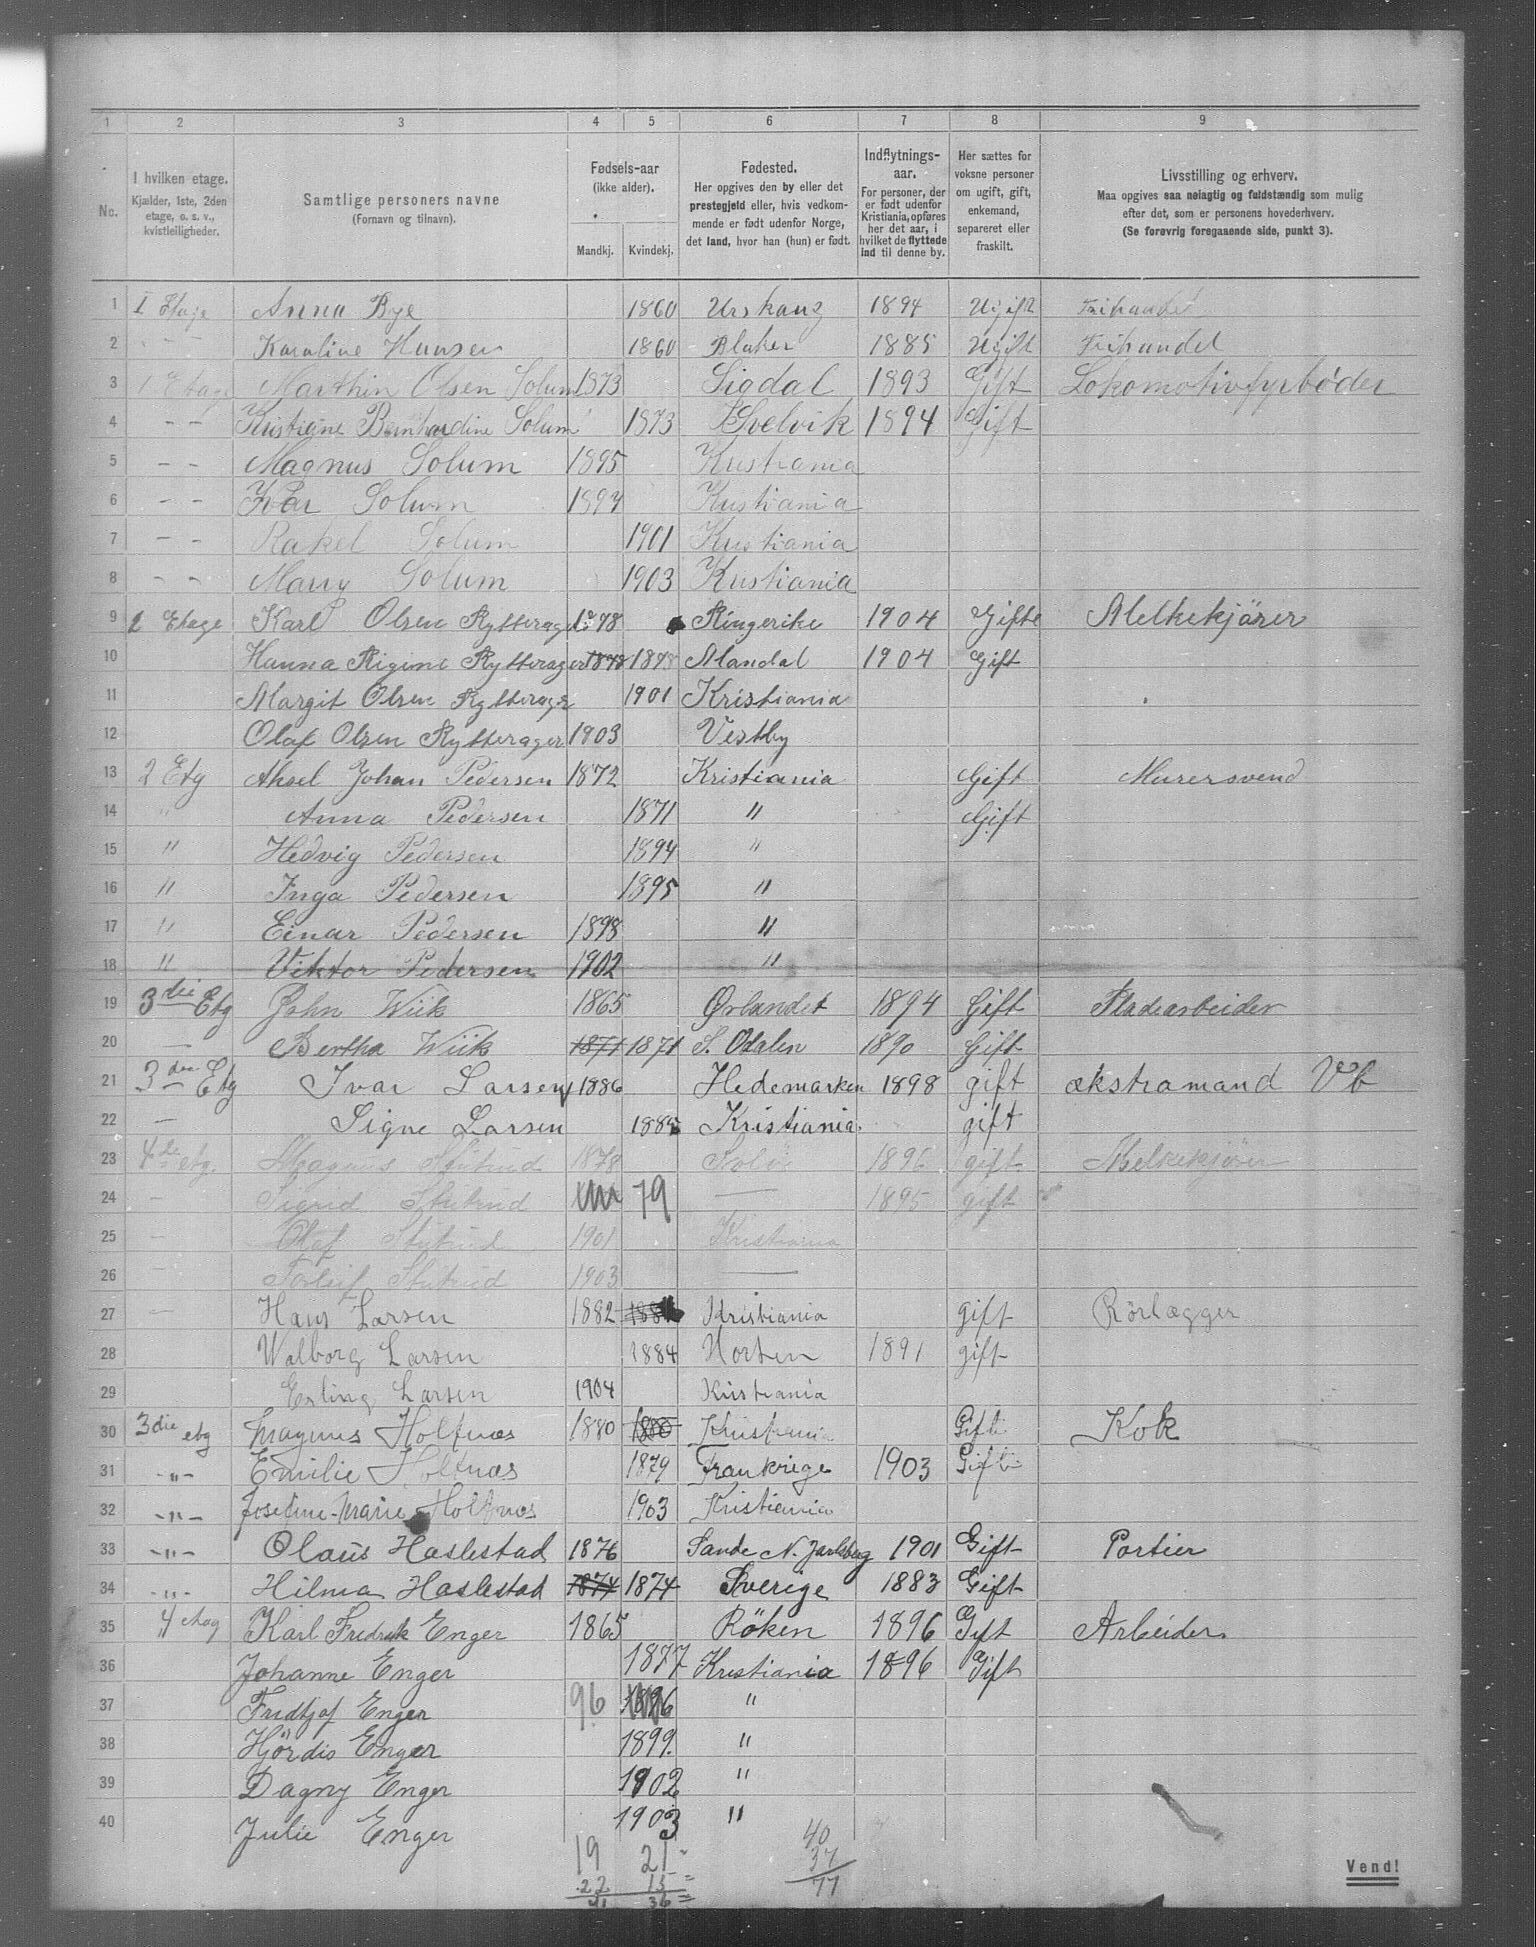 1 2 3 4 5 6 7 8 9
No.
I hvilken etage.
Kjælder, 1ste, 2den
etage, o. s. v.,
kvistleiligheder.
Samtlige personers navne
(Fornavn og tilnavn).
Fødsels-aar
(ikke alder).
Mandkj. Kvindekj.
Fødested.
Her opgives den by eller det
prestegjeld eller, hvis vedkom-
mende er født udenfor Norge,
det land, hvor han (hun) er født.
Indflytnings-
aar.
For personer, der
er født udenfor
Kristiania, opføres
her det aar, i
hvilket de flyttede
ind til denne by.
Her sættes for
voksne personer
om ugift, gift,
enkemand,
separeret eller
fraskilt.
Livsstilling og erhverv.
Maa opgives saa nøiagtig og fuldstændig som mulig
efter det, som er personens hovederhverv.
(Se forøvrig foregaaende side, punkt 3).
1 I Etage Anna Bye 1860 Urskaug 1894 Ugift Frihandel
2 - - Karoline Hansen 1860 Blaker 1885 Ugift Frihandel
3 1 Etage Marthin Olsen Solum 1873 Sigdal 1893 Gift Lokomotivfyrbøder
4 - - Kristiane Bernhardine Solum 1873 Svelvik 1894 Gift
5 - - Magnus Solum 1895 Kristiania
6 - - Ivar Solum 1897 Kristiania
7 - - Rakel Solum 1901 Kristiania
8 - - Marry Solum 1903 Kristiania
9 2 Etage Karl Olsen Rytterager 1878 Ringerike 1904 Gifte Melkekjörer
10 Hanna Rigine Rytterager 1878 1878 Mandal 1904 Gift
11 Margit Olsen Rytterager 1901 Kristiania
12 Olaf Olsen Rytterager 1903 Vestby
13 2 Etg Aksel Johan Pedersen 1872 Kristiania Gift Murersvend
14 " Anna Pedersen 1871 " Gift
15 " Hedvig Pedersen 1894 "
16 " Inga Pedersen 1895 "
17 " Einar Pedersen 1898 "
18 " Viktor Pedersen 1902 "
19 3die Etg John Wiik 1865 Ørlandet 1894 Gift Pladearbeider
20 — Bertha Wiik 1871 1871 S. Odalen 1890 Gift
21 3die Etg Ivar Larsen 1886 Hedemarken 1898 gift ekstramand Vb
22 — Signe Larsen Kristiania. gift
23 4de etg. Magnus Stutrud 1878 1896 gift Melkekjörer
24 - Sigrid Stutrud 79 — 1895 gift
25 - Olaf Stutrud 1901 Kristiania
26 - Torleif Stutrud 1903 —
27 - Hans Larsen 1882 Kristiania gift Rörlægger
28 Walborg Larsen 1884 Horten 1891 gift
29 Erling Larsen 1904 Kristiania
30 3die etg Magnus Holtnæs 1880 1880 Kristiania Gift Kok
31 -"- Emilie Holtnæs 1879 Frankrige 1903 Gift
32 -"- Josefine-Marie Holtnæs 1903 Kristiania
33 -"- Olaus Haslestad 1876 Sande N. Jarlsberg 1901 Gift Portier
34 -"- Hilma Haslestad 1874 1874 Sverige 1883 Gift
35 4 etag Karl Fredrik Enger 1865 Röken 1896 Gift Arbeider
36 Johanne Enger 1877 Kristiania 1896 Gift
37 Fridtjof Enger 96 1896 "
38 Hjördis Enger 1899. "
39 Dagny Enger 1902 "
40 Julie Enger 1903 "
19 21 40
22 15 37
41 36 77
Vend!